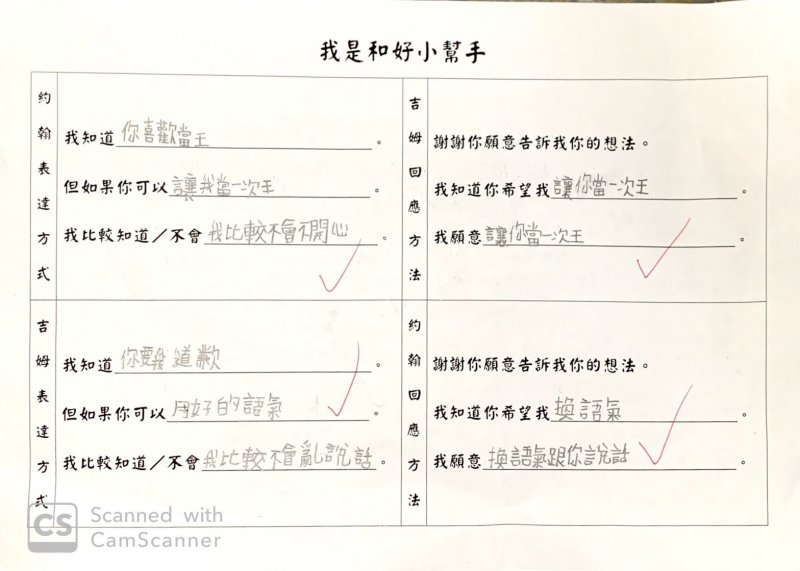 我是和好小幫手
約翰表達方式
我知道你喜歡當王。
但如果你可以讓我當一次王。
我比較知道／不會我比較不會不開心。
吉姆回應方法
謝謝你願意告訴我你的想法。
我知道你希望我讓你當一次王。
我願意讓你當一次王。
吉姆表達方式
我知道你要我道歉。
但如果你可以用好的語氣。
我比較知道／不會我比較不會亂說話。
約翰回應方法
謝謝你願意告訴我你的想法。
我知道你希望我換語氣。
我願意換語氣跟你說話。
CS Scanned with
CamScanner